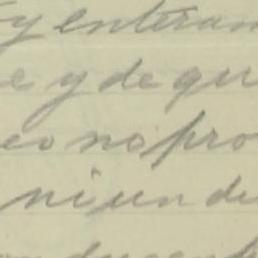 y enteram
e y de qu
eo no pro
ni un di